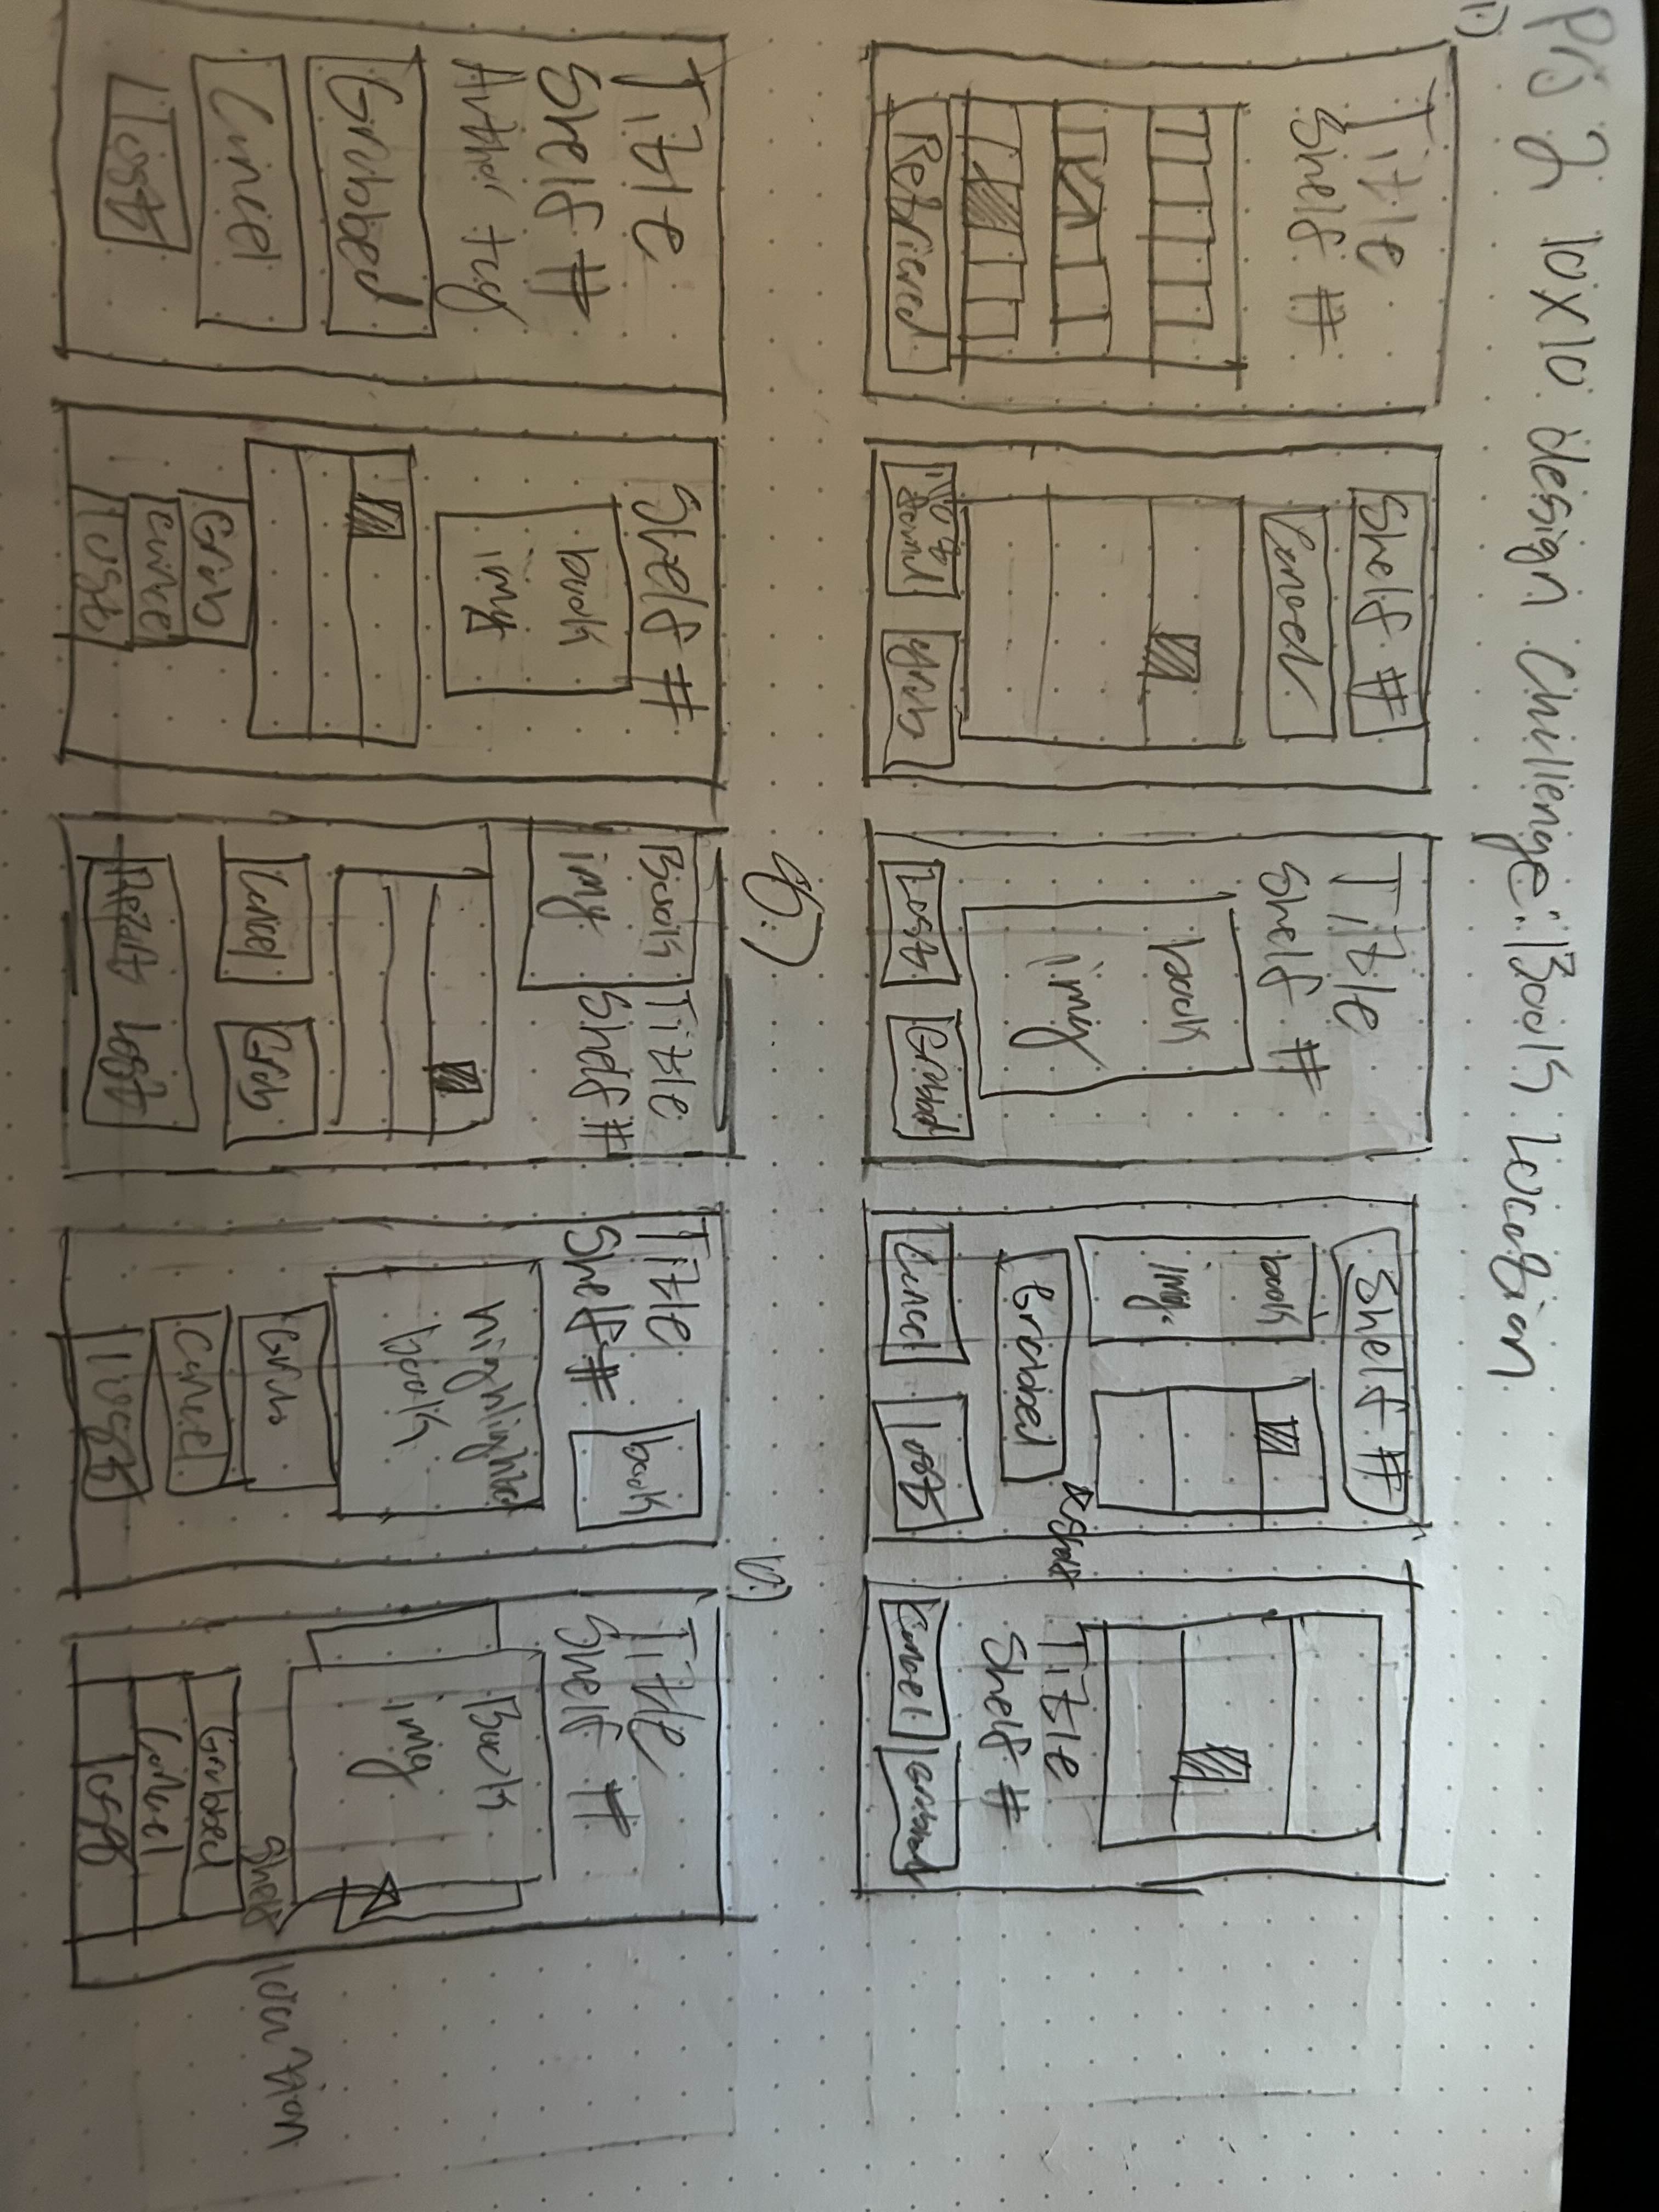 PS 2 10x10 design Challenge: Book Location
1.)
Title
Shelf #
Retrieved
Shelf #
Cancel
Not found
grab
Title
Shelf #
book
img
Lost
Grabbed
Shelf #
book
img.
Grabbed
Cancel
Lost
Shelf
Title
Shelf #
Cancel
Grabbed
Title
Shelf #
Author tag
Grabbed
Cancel
Lost
Shelf #
book
img
Grab
Cancel
Lost
8.)
Book
img
Title
Shelf #
Cancel
Grab
Report Lost
Title
Shelf #
book
highlighted
book
Grab
Cancel
Lost
10.)
Title
Shelf #
Book
img
Grabbed
Cancel
Lost
Shelf location